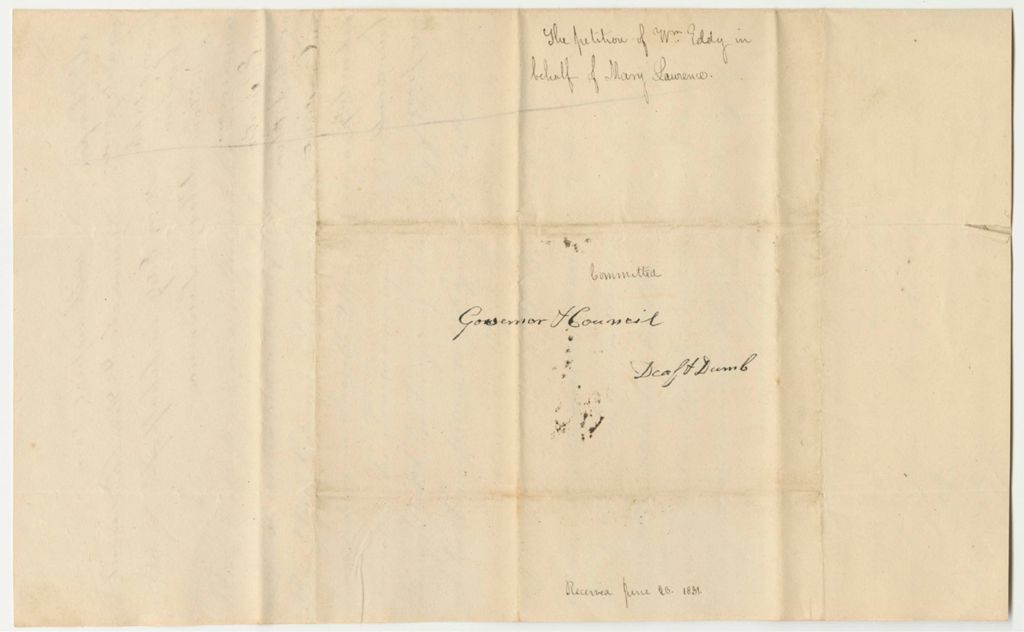 The petition of Wm Eddy in
behalf of Mary Lawrence.
Committed
Governor & Council
Deaf & Dumb
Received June 1831.